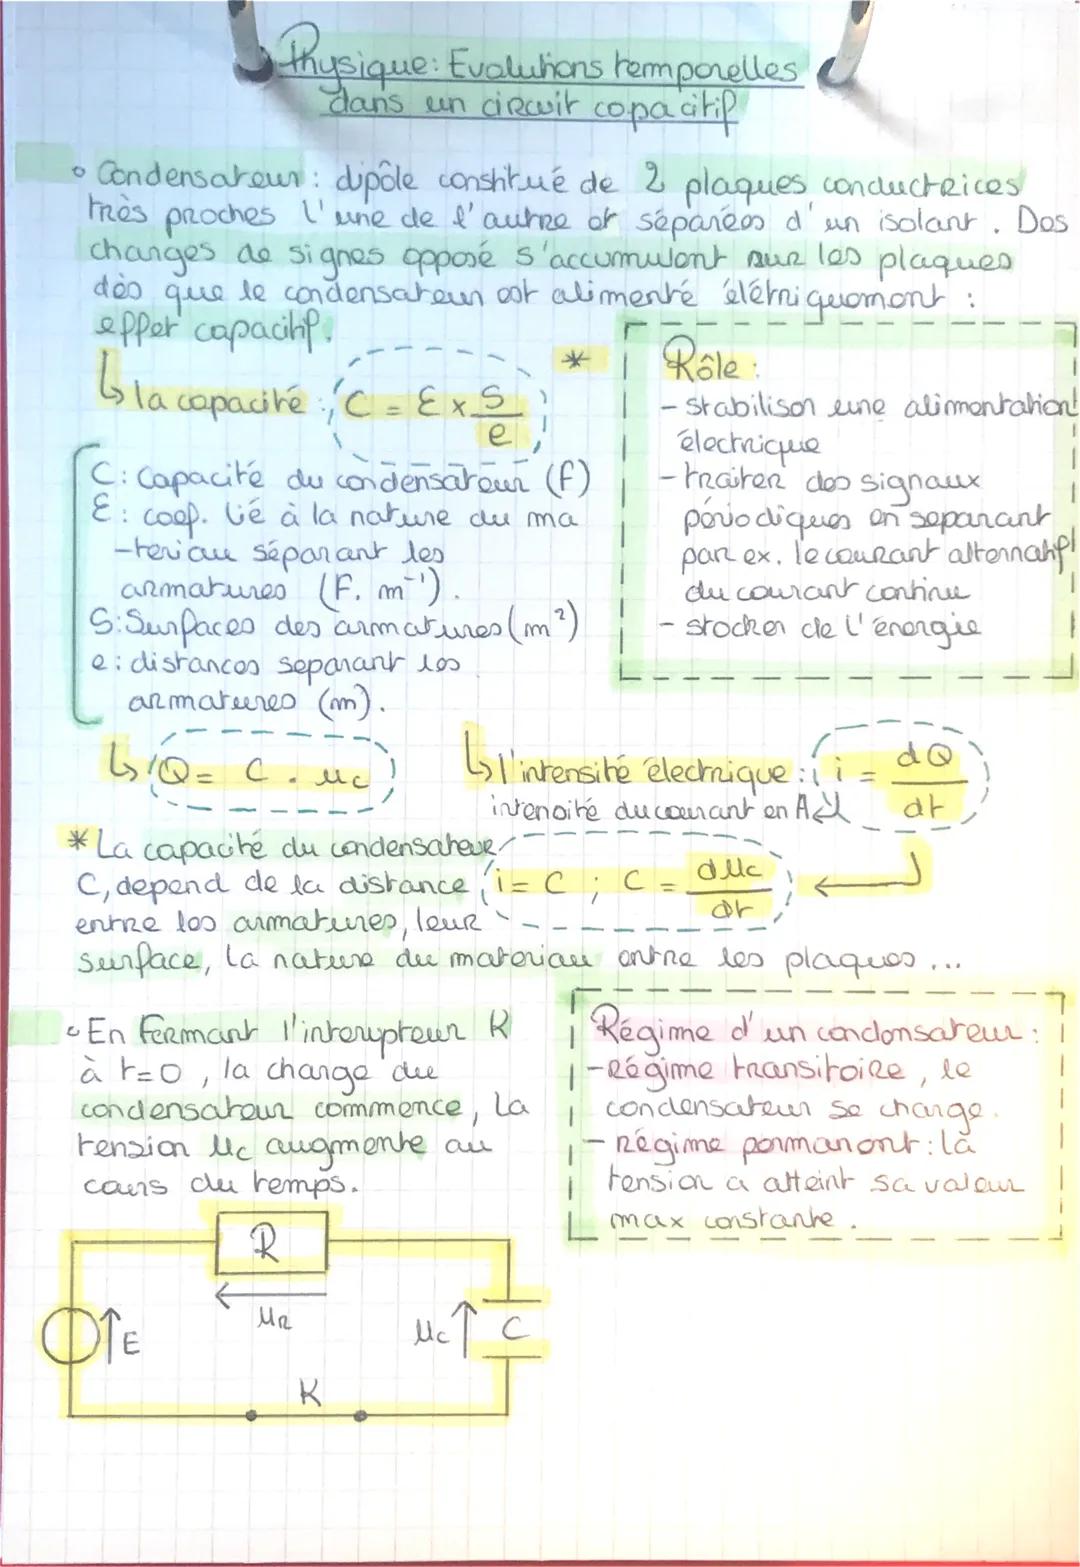 Physique: Evolutions temporelles
dans un circuit capacitif
• Condensateur : dipôle constitué de 2 plaques conductrices
très proches l'une de l'autre et séparées d'un isolant. Des
charges de signes opposé s'accumulent sur les plaques
dès que le condensateur est alimenté élétriquement :
effet capacitif.
↳ la capacité : C = Ɛ x S/e *
C: Capacité du condensateur (F)
Ɛ: coef. lié à la nature du ma
-teriau séparant les
armatures (F. m⁻¹).
S: Surfaces des armatures (m²)
e: distances separant les
armatures (m).
Rôle :
- stabiliser une alimentation
électrique
- traiter des signaux
périodiques en separant
par ex. le courant alternatif
du courant continu
- stocker de l'énergie
↳ Q = C . uc
↳ l'intensité électrique : i = dQ/dt
intensité du courant en A
* La capacité du condensateur
C, depend de la distance
entre les armatures, leur
surface, la nature du materiau entre les plaques ...
i = C ; C = duc/dt
• En fermant l'interupteur K
à t=0, la charge du
condensateur commence, la
tension uc augmente au
cours du temps.
Régime d'un condensateur :
- Régime transitoire, le
condensateur se charge.
- régime permanent : la
tension a atteint sa valeur
max constante.
R
uR
E
uc
C
K